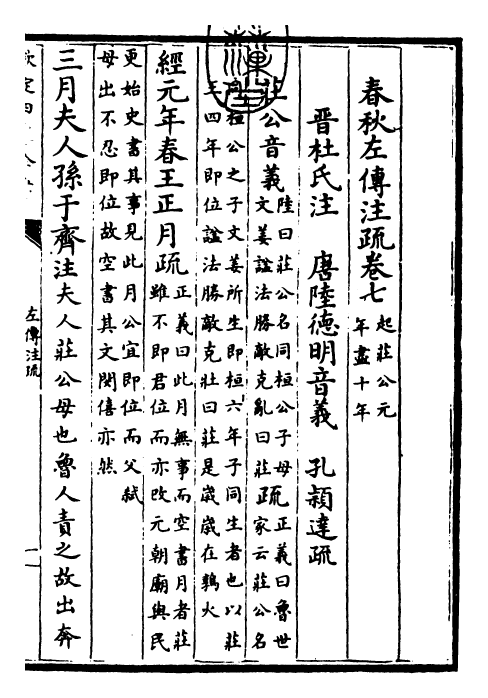 春秋左傳注疏卷七 起莊公元年盡十年
晉杜氏注 唐陸德明音義 孔穎達疏
莊公音義 陸曰莊公名同桓公子母文姜諡法勝敵克亂曰莊 疏 正義曰魯世家云莊公名
桓公之子文姜所生即桓六年子同生者也以莊王四年即位諡法勝敵克壯曰莊是歲歲在鶉火
經元年春王正月 疏 正義曰此月無事而空書月者莊雖不即君位而亦改元朝廟與民
更始史書其事見此月公宜即位而父弑母出不忍即位故空書其文閔僖亦然
三月夫人孫于齊 注 夫人莊公母也魯人責之故出奔
左傳注疏
一